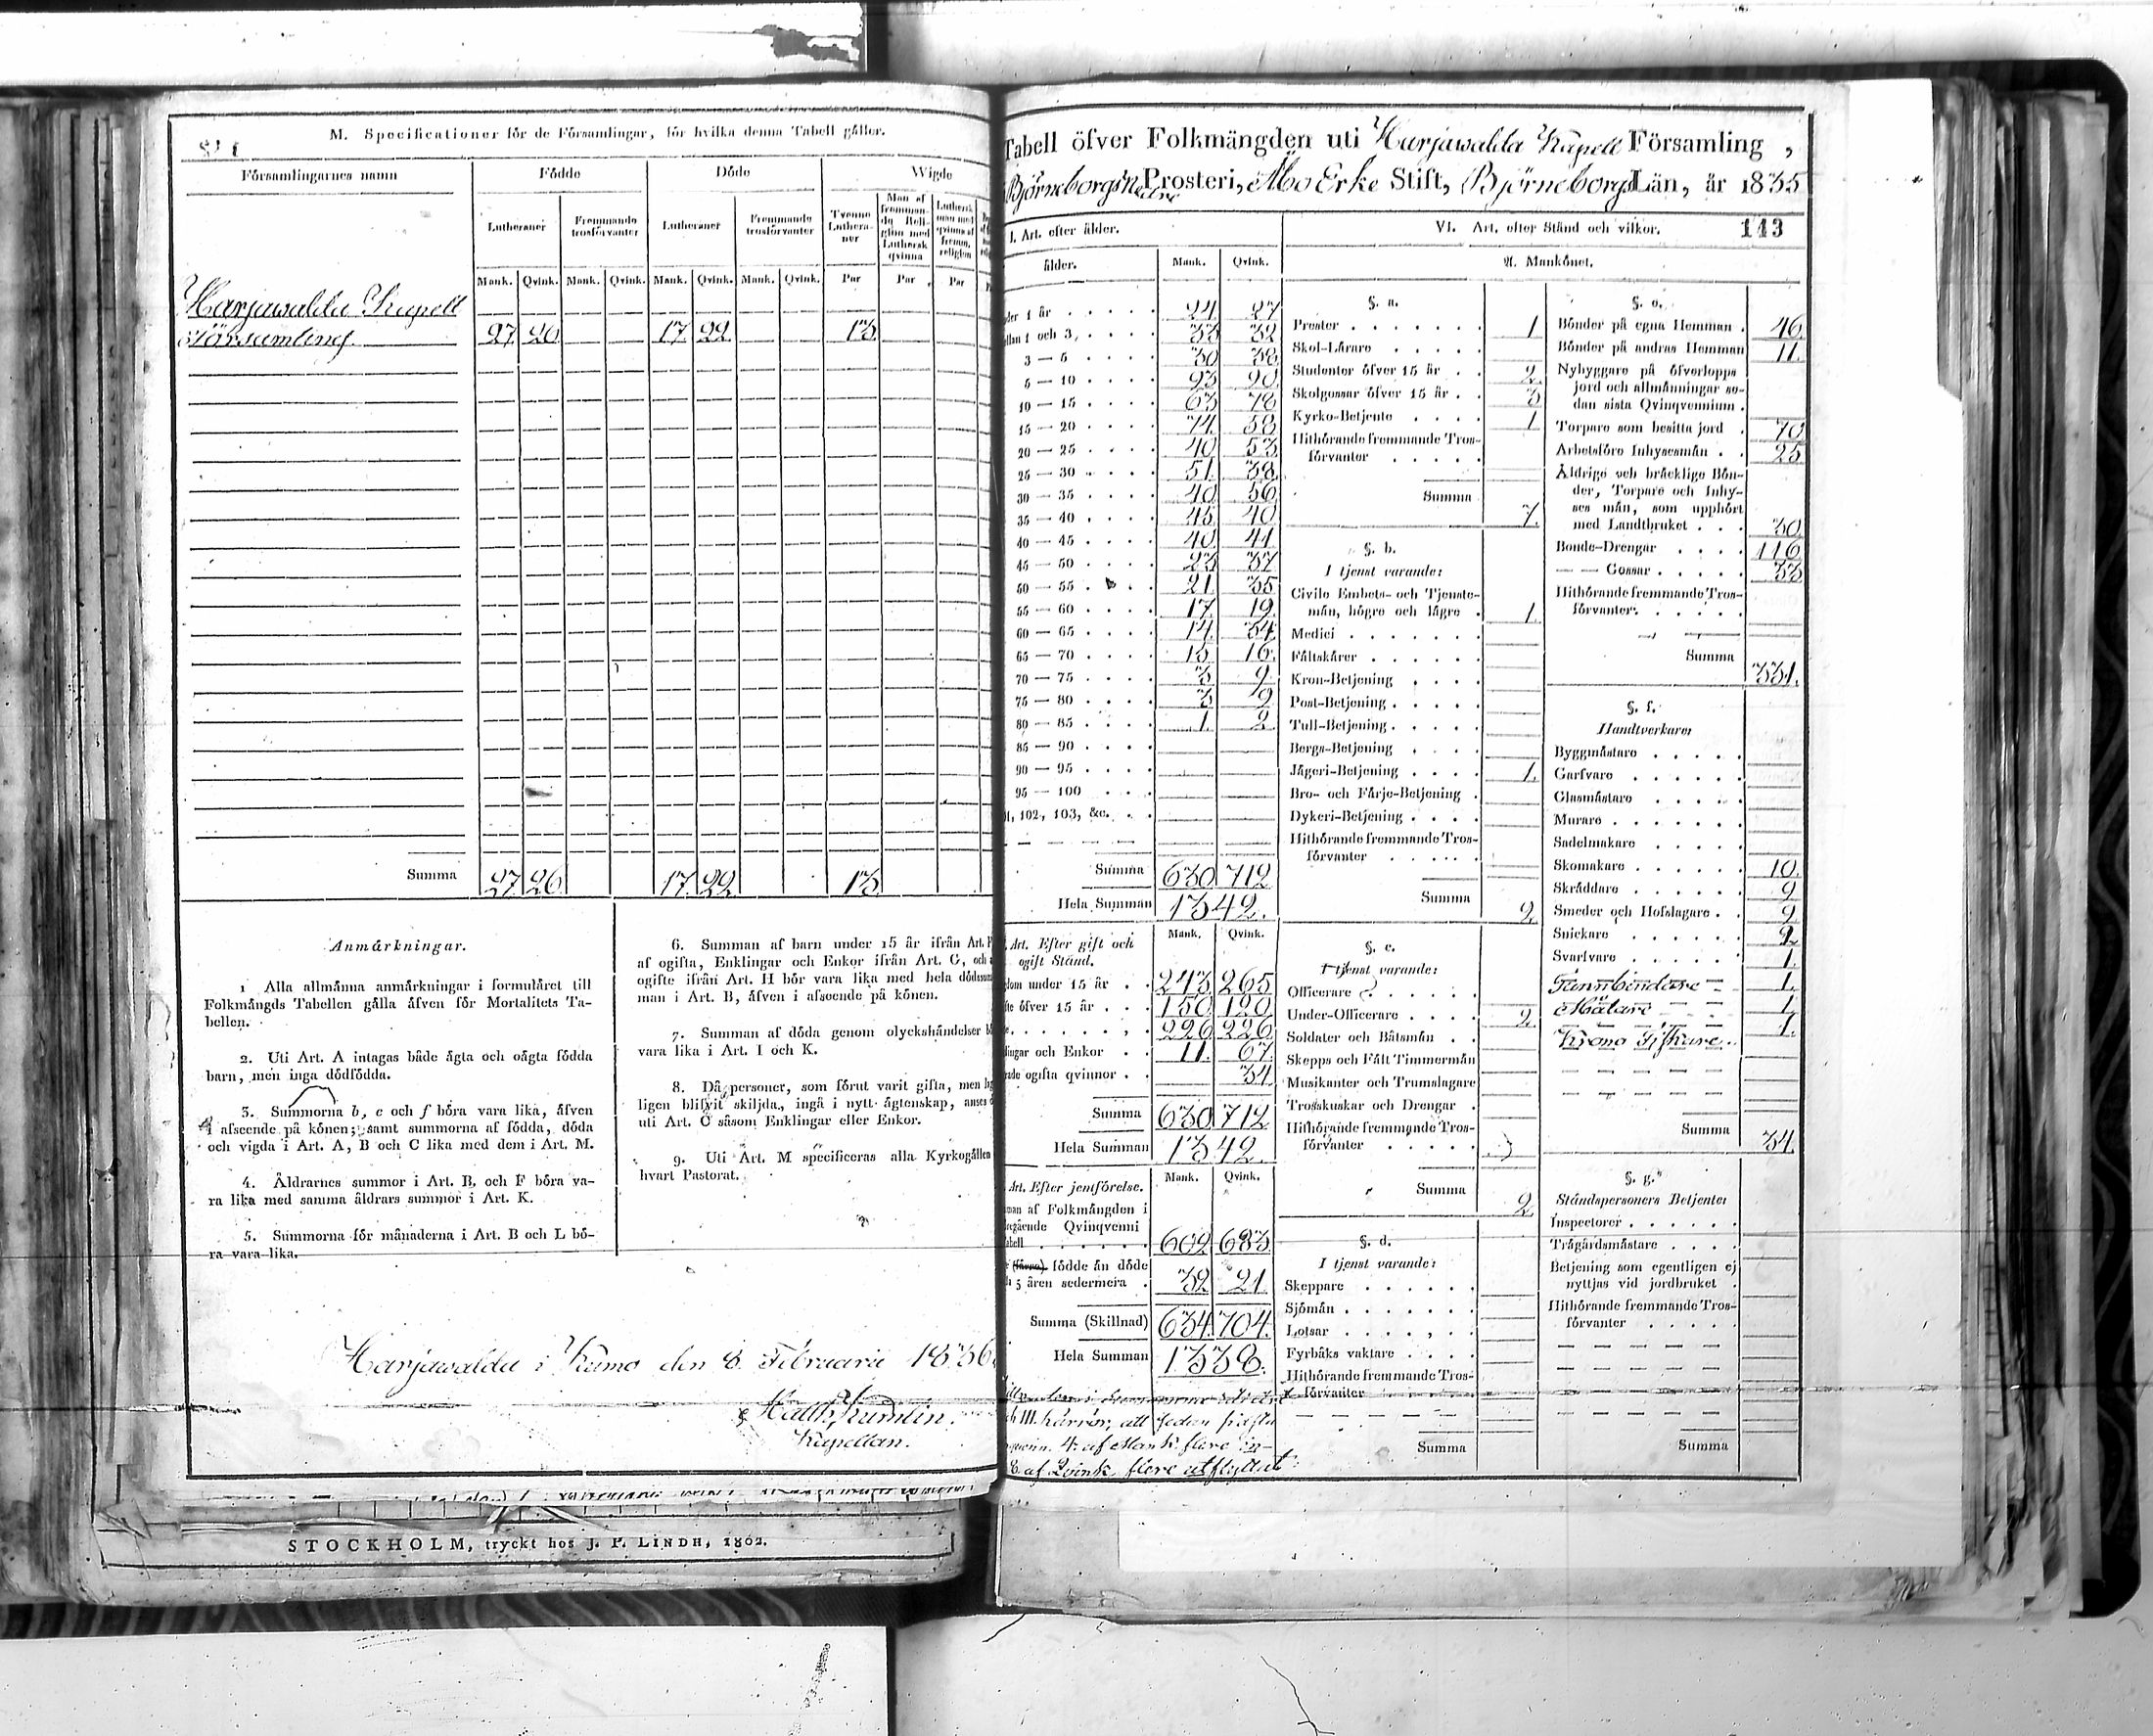 M. Specificationer för de Församlingar, för hvilka denna Tabell gäller.
Församlingarnes namn
Födde Döde Wigde
Lutheraner Fremmande trosförvanter Lutheraner Fremmande trosförvanter Tvenne Lutheraner Man af fremmande Religion med Luthersk qvinna Luthersk man med qvinna af fremm. religion
Mank. Qvink. Mank. Qvink. Mank. Qvink. Mank. Qvink. Par Par Par
Harjawalda Kapell
Församling 27 26 17. 22. 13.
Summa 27. 26. 17. 22. 13.
Anmärkningar.
1 Alla allmänna anmärkningar i formuläret till
Folkmängds Tabellen gälla äfven för Mortalitets Ta-
bellen.
2. Uti Art. A intagas både ägta och oägta födda
barn, men inga dödfödda.
3. Summorna b, e och f böra vara lika, äfven
i afseende på könen; samt summorna af födda, döda
och vigda i Art. A, B och C lika med dem i Art. M.
4. Åldrarnes summor i Art. B, och F böra va-
ra lika med samma åldrars summor i Art. K.
5. Summorna för månaderna i Art. B och L bö-
ra vara lika.
6. Summan af barn under 15 år ifrån Art.
af ogifta, Enklingar och Enkor ifrån Art. G, och
ogifte ifrån Art. H bör vara lika med hela
man i Art. B, äfven i afseende på könen.
7. Summan af döda genom olyckshändelser
vara lika i Art. I och K.
8. Då personer, som förut varit gifta, men
ligen blifvit skiljda, ingå i nytt ägtenskap, anses
uti Art. C såsom Enklingar eller Enkor.
9. Uti Art. M specificeras alla Kyrkogällen
hvart Pastorat.
Harjawalda i Kumo den 8 Februarii 1836
Matth Kumlin.
Kapellan.
STOCKHOLM, tryckt hos J. P. LINDH, 1802.
Tabell öfver Folkmängden uti Harjawalda Kapell Församling,
Björneborgs Nedre Prosteri, Åbo Erke Stift, Björneborgs Län, år 1835
143
I. Art. efter ålder.
ålder. Mank. Qvink.
1 år 24 27
1 och 3 33 32
3 — 5 30 38
5 — 10 93 90
10 — 15 63 78
15 — 20 74 58
20 — 25 40 53
25 — 30 51. 38
30 — 35 40 56
35 — 40 45 40
40 — 45 40 41
45 — 50 23 37
50 — 55 21. 35
55 — 60 17. 19.
60 — 65 14. 34
65 — 70 15 16.
70 — 75 3 9
75 — 80 3 9
80 — 85 1. 2
85 — 90
90 — 95
95 — 100
102, 103, &c.
Summa 630 712
Hela Summan 1342.
Art. Efter gift och
ogift Stånd. Mank. Qvink.
under 15 år 243 265
öfver 15 år 150 120
226 226
och Enkor 11. 67
ogifta qvinnor 34
Summa 630 712
Hela Summan 1342.
Art. Efter jemförelse. Mank. Qvink.
af Folkmängden i
Qvinqvenni
602 683
födde än döde
5 åren sedermera 32 21
Summa (Skillnad) 634. 704.
Hela Summan 1338.
III. härrör, att sedan sista
4. af Mank. flere in-
8 af Qvink. flere utflyttat
VI. Art. efter Stånd och vilkor.
A. Mankönet.
§. a.
Prester 1.
Skol-Lärare
Studenter öfver 15 år 2.
Skolgossar öfver 15 år 3
Kyrko-Betjente 1
Hithörande fremmande Tros-
förvanter
Summa 7.
§. b.
I tjenst varande:
Civile Embets- och Tjenste-
män, högre och lägre 1.
Medici
Fältskärer
Kron-Betjening
Post-Betjening
Tull-Betjening
Bergs-Betjening
Jägeri-Betjening 1.
Bro- och Färje-Betjening
Dykeri-Betjening
Hithörande fremmande Tros-
förvanter
Summa 2.
§. c.
I tjenst varande:
Officerare
Under-Officerare 2
Soldater och Båtsmän
Skepps och Fält Timmermän
Musikanter och Trumslagare
Trosskuskar och Drengar
Hithörande fremmande Tros-
förvanter
Summa 2
§. d.
I tjenst varande:
Skeppare
Sjömän
Lotsar
Fyrbåks vaktare
Hithörande fremmande Tros-
förvanter
Summa
§. e.
Bönder på egna Hemman 46
Bönder på andras Hemman 11.
Nybyggare på öfverlopps
jord och allmänningar se-
dan sista Qvinqvennium
Torpare som besitta jord 70
Arbetsföre Inhysesmän 25
Åldrige och bräcklige Bön-
der, Torpare och Inhy-
ses män, som upphört
med Landtbruket 30
Bonde-Drengar 116
— — Gossar 33
Hithörande fremmande Tros-
förvanter
Summa 331.
§. f.
Handtverkare:
Byggmästare
Garfvare
Glasmästare
Murare
Sadelmakare
Skomakare 10.
Skräddare 9
Smeder och Hofslagare 9
Snickare 2
Svarfvare 1.
Tunnbindare 1.
Målare 1
Krono Fiskare 1.
Summa 34.
§. g.
Ståndspersoners Betjente:
Inspectorer
Trägårdsmästare
Betjening som egentligen ej
nyttjas vid jordbruket
Hithörande fremmande Tros-
förvanter
Summa